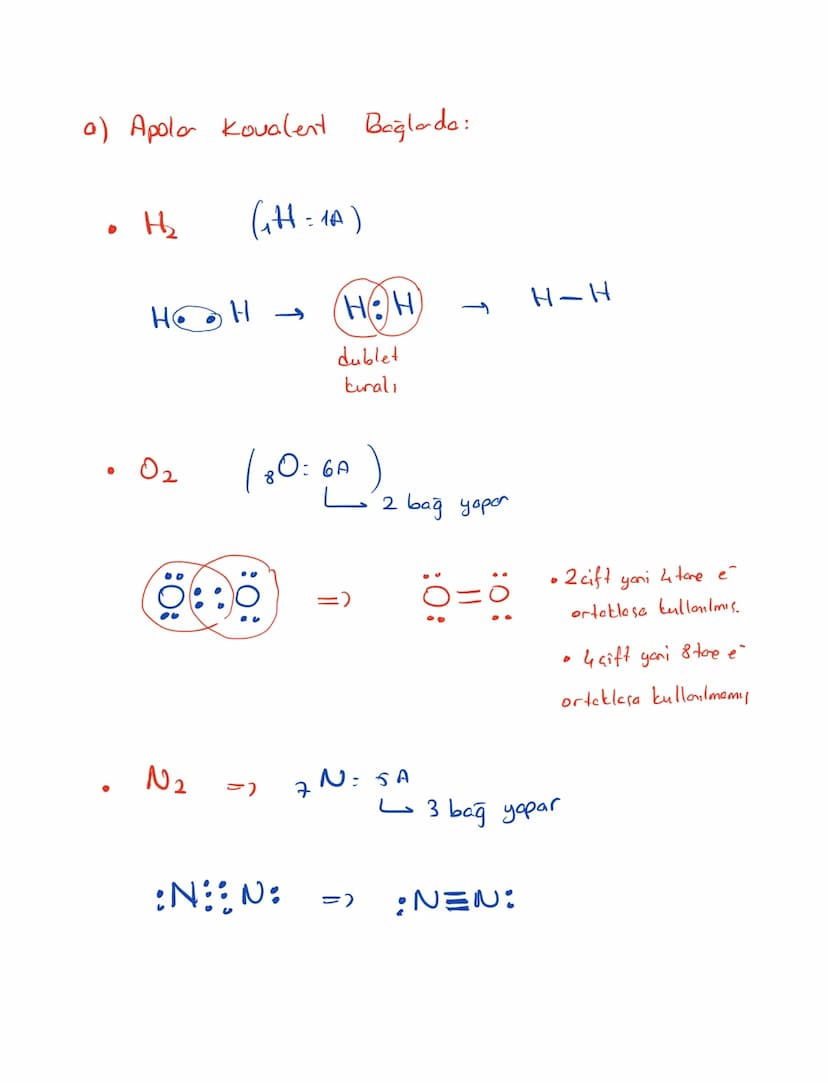 a) Apolar Kovalent Bağlarda:
• H₂ (₁H = 1A)
H • • H → H : H → H – H
dublet
kuralı
• O₂ (₈O: 6A)
2 bağ yapar
Ö :: Ö => Ö = Ö
• 2 çift yani 4 tane e⁻
ortaklaşa kullanılmış.
• 4 çift yani 8 tane e⁻
ortaklaşa kullanılmamış
• N₂ => ₇N: 5A
3 bağ yapar
:N⋮⋮N: => :N≡N: